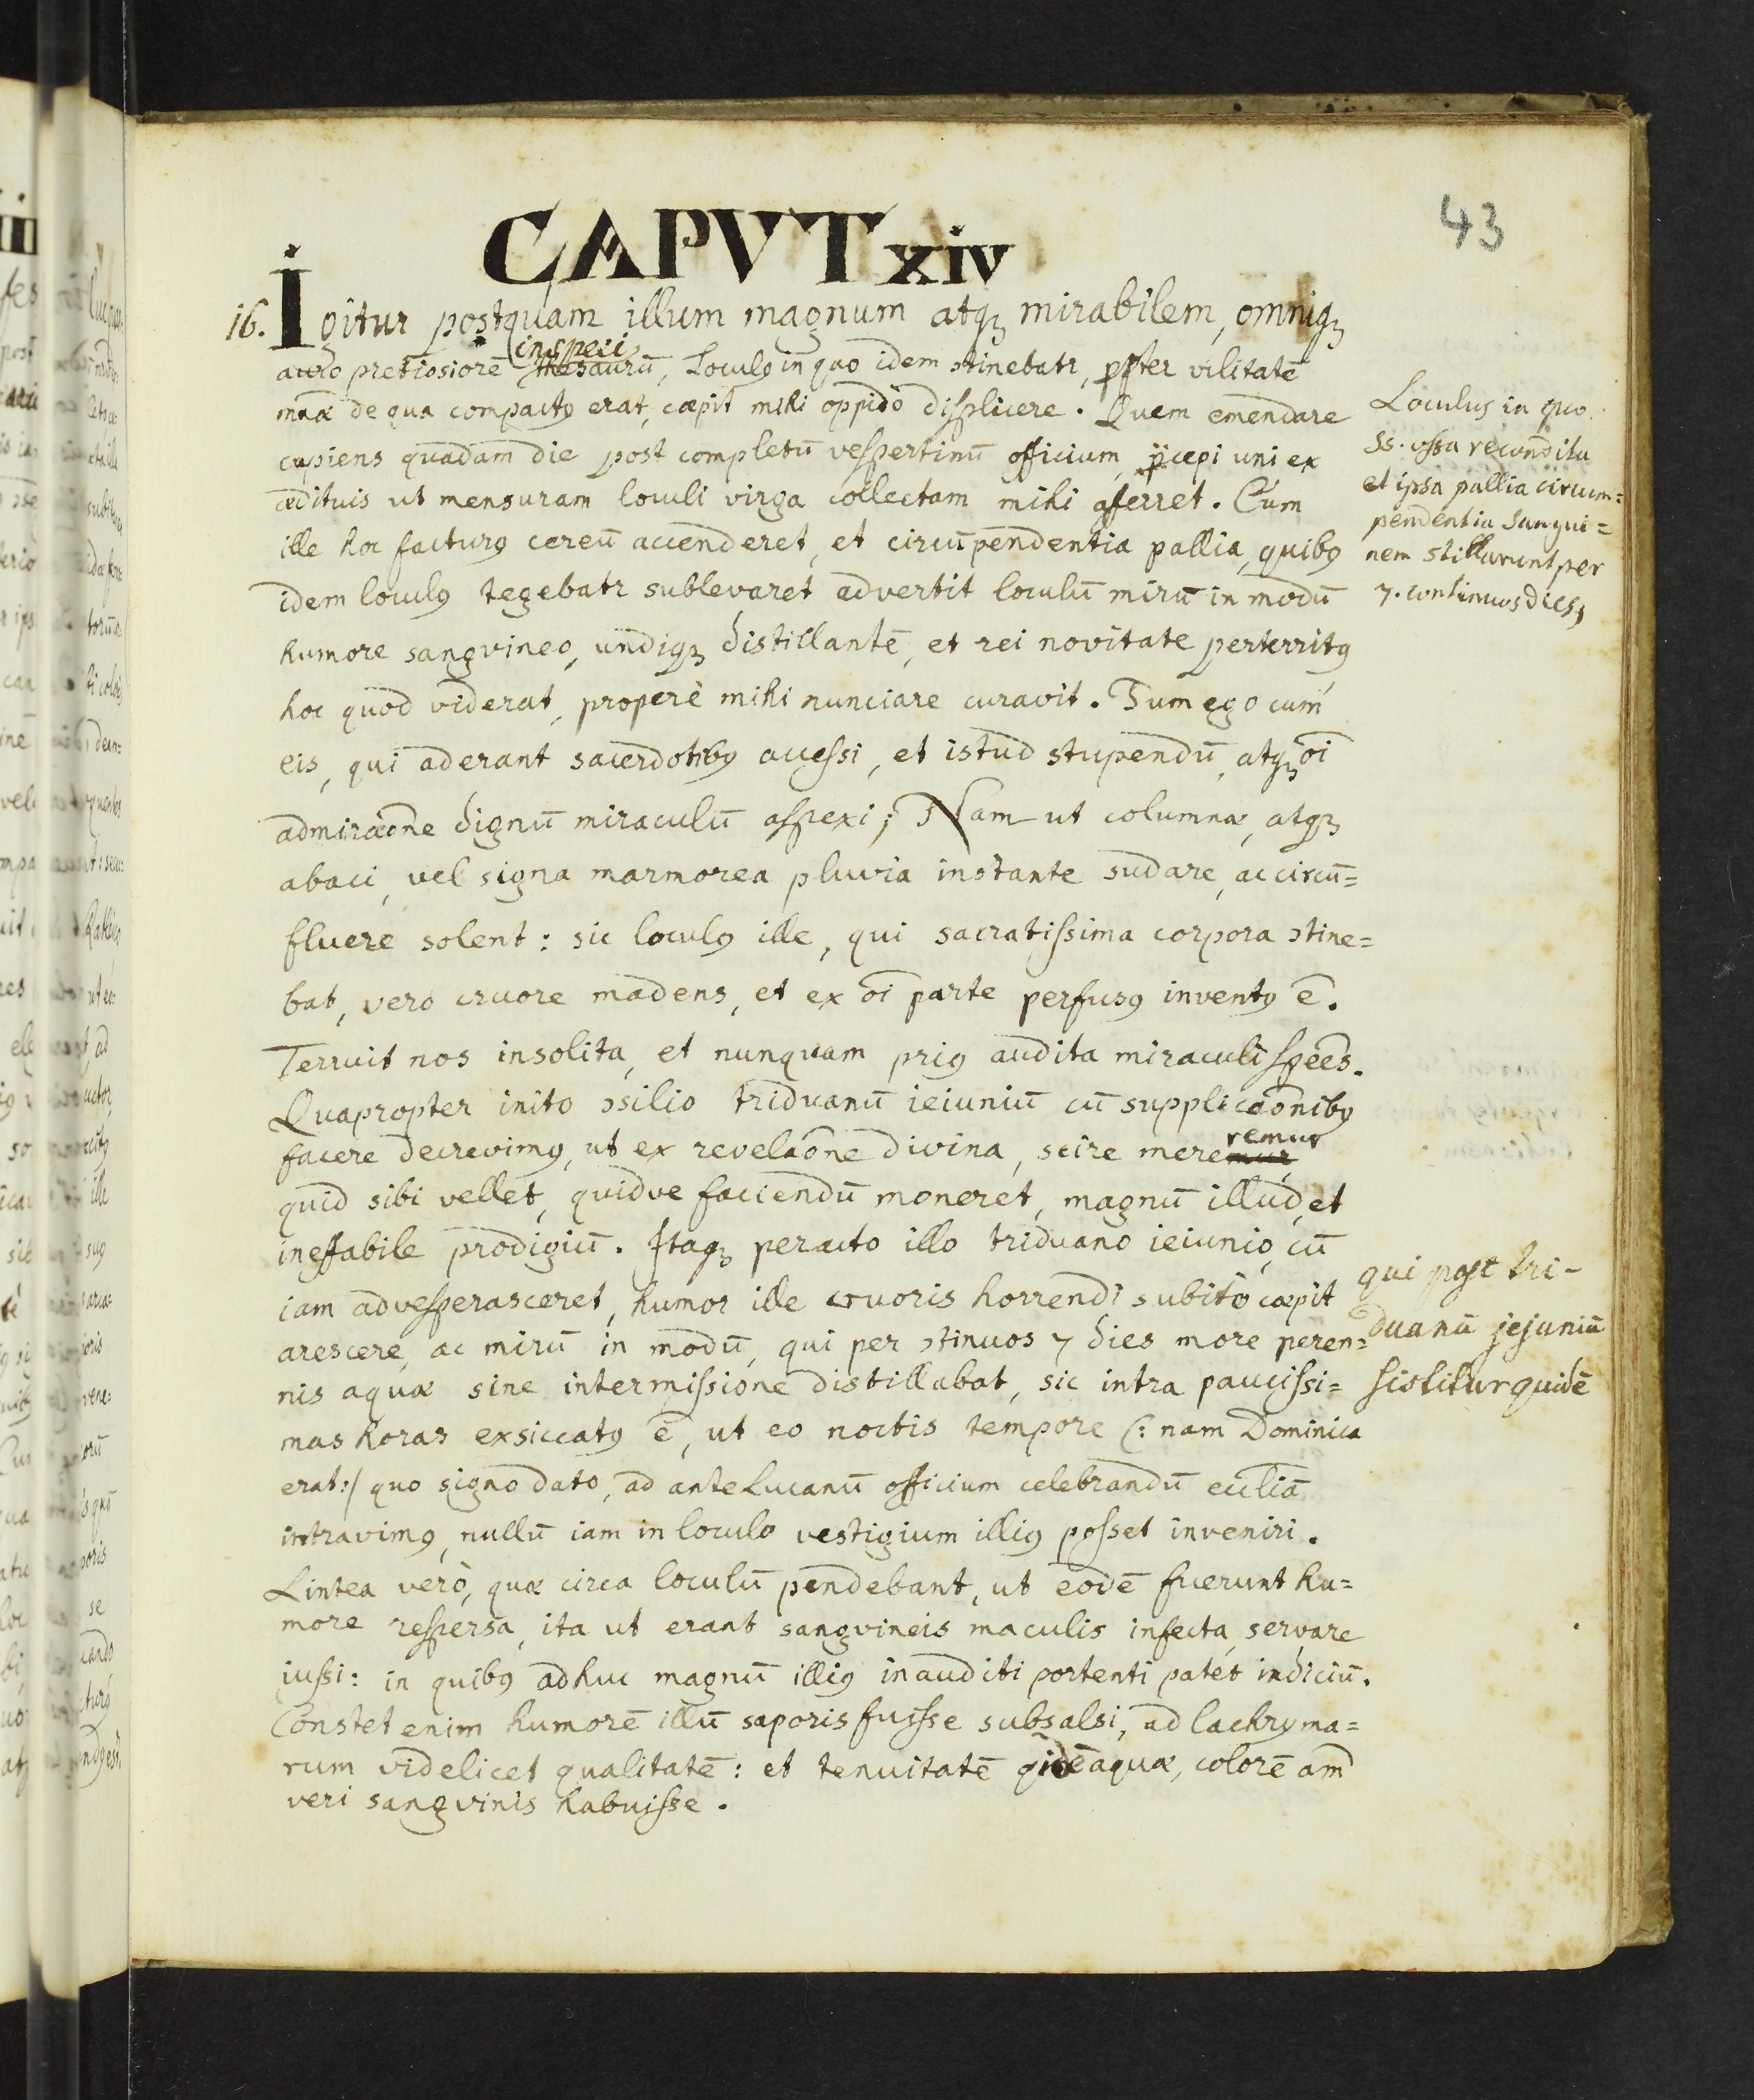 43
CAPVT xiv
16. Igitur postquam illum magnum atqꝫ mirabilem, omniqꝫ
inspexi
auro pretiosiorē thesaurū, Loculꝰ in quo idem ↄtinebatr, ꝓpter vilitatē
mãæ de qua compactꝰ erat, cæpit mihi oppidò displicere. Quem emendare
cupiens quadam die post completū vespertinū officium, p̃cepi uni ex
ædituis ut mensuram loculi virga collectam mihi afferret. Cum
ille hoc facturꝰ cereū accenderet, et circūpendentia pallia, quibꝰ
idem loculꝰ tegebatr sublevaret advertit loculū mirū in modū
humore sangvineo, undiqꝫ distillantē, et rei novitate perterritꝰ
hoc quod viderat, properè mihi nunciare curavit. Tum ego cum
eis, qui aderant sacerdotibꝰ accessi, et istud stupendū, atqꝫ oī
admiraōne dignū miraculū aspexi; Nam ut columnæ, atqꝫ
abaci, vel signa marmorea pluvia instante sudare, ac circū=
fluere solent: sic loculꝰ ille, qui sacratissima corpora ↄtine=
bat, vero cruore madens, et ex oī parte perfusꝰ inventꝰ ē.
Terruit nos insolita, et nunquam priꝰ audita miraculi spēes.
Quapropter inito ↄsilio triduanū ieiuniū cū supplicaōnibꝰ
facere decrevimꝰ, ut ex revelaōne divina, scire meremur
remur
quid sibi vellet, quidve faciendū moneret, magnū illud, et
ineffabile prodigiū. Itaqꝫ peracto illo triduano ieiunio, cū
iam advesperasceret, humor ille cruoris horrendi subitò cæpit
arescere, ac mirū in modū, qui per ↄtinuos 7 dies more peren=
nis aquæ sine intermissione distillabat, sic intra paucissi=
mas horas exsiccatꝰ ē, ut eo noctis tempore (: nam Dominica
erat:) quo signo dato, ad antelucanū officium celebrandū eccliã
intravimꝰ, nullū iam in loculo vestigium illiꝰ posset inveniri.
Lintea verò, quæ circa loculū pendebant, ut eodē fuerunt hu=
more respersa, ita ut erant sangvineis maculis infecta, servare
iussi: in quibꝰ adhuc magnū illiꝰ inauditi portenti patet indiciū.
Constet enim humorē illū saporis fuisse subsalsi, ad lachryma=
rum videlicet qualitatē: et tenuitatē qidē aquæ, colorē am̄
veri sangvinis habuisse.
Loculus in quo
SS. ossa recondita
et ipsa pallia circum=
pendentia sangui=
nem stillarunt per
7. continuos dies,
qui post tri-
duanū jejuniū
sistitur quidē